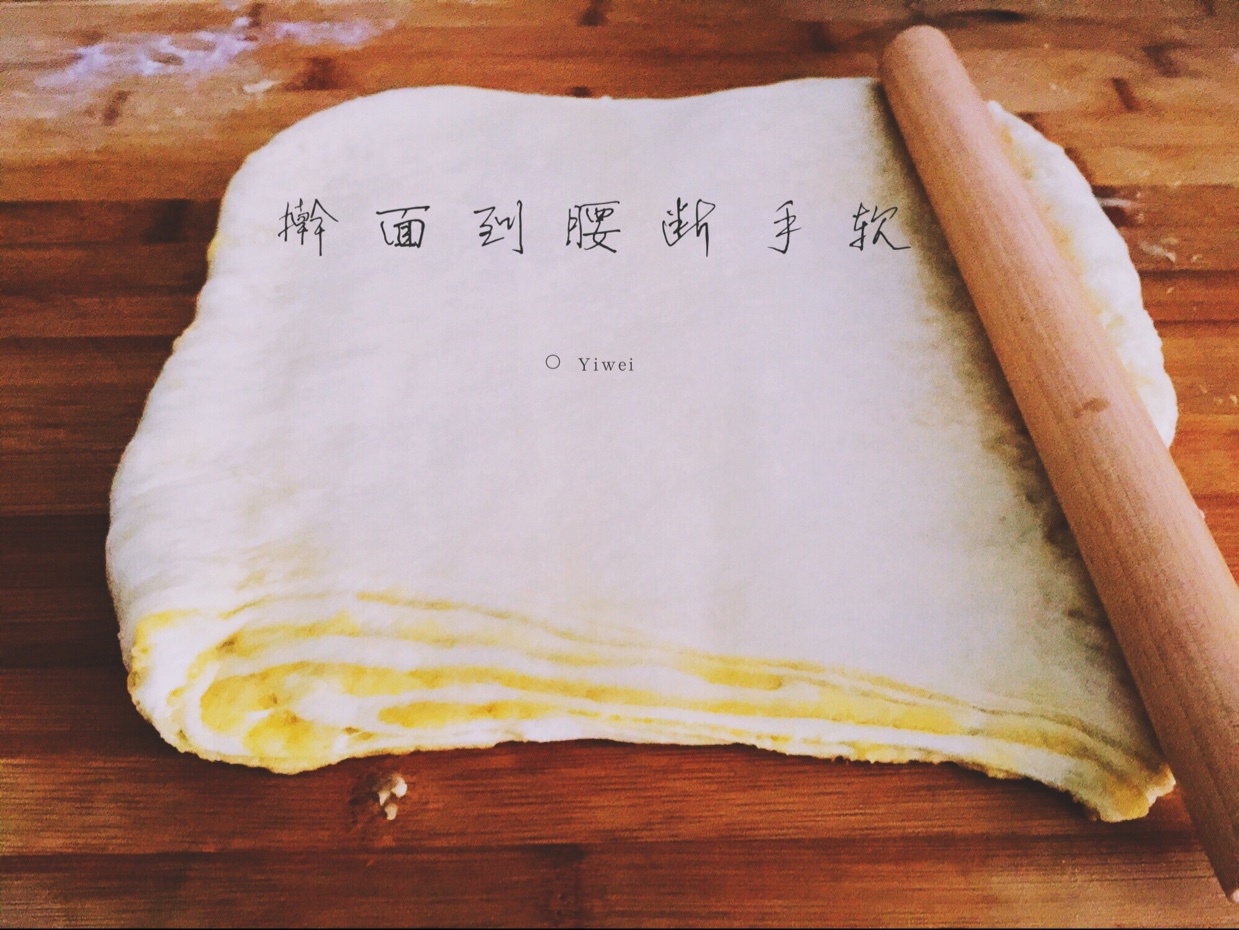 擀面到腰断手软
○ Yiwei